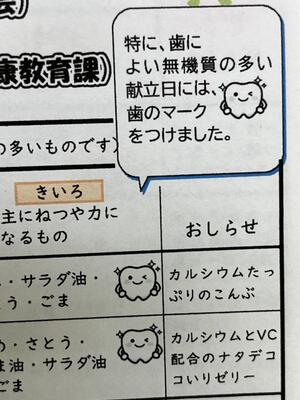 会)
康教育課)
特に、歯に
よい無機質の多い
献立日には、
歯のマーク
をつけました。
の多いものです)
きいろ
主にねつや力に
なるもの
おしらせ
・サラダ油・
とう・ごま
カルシウムたっ
ぷりのこんぶ
・さとう・
ま油・サラダ油
ごま
カルシウムとVC
配合のナタデコ
コいりゼリー